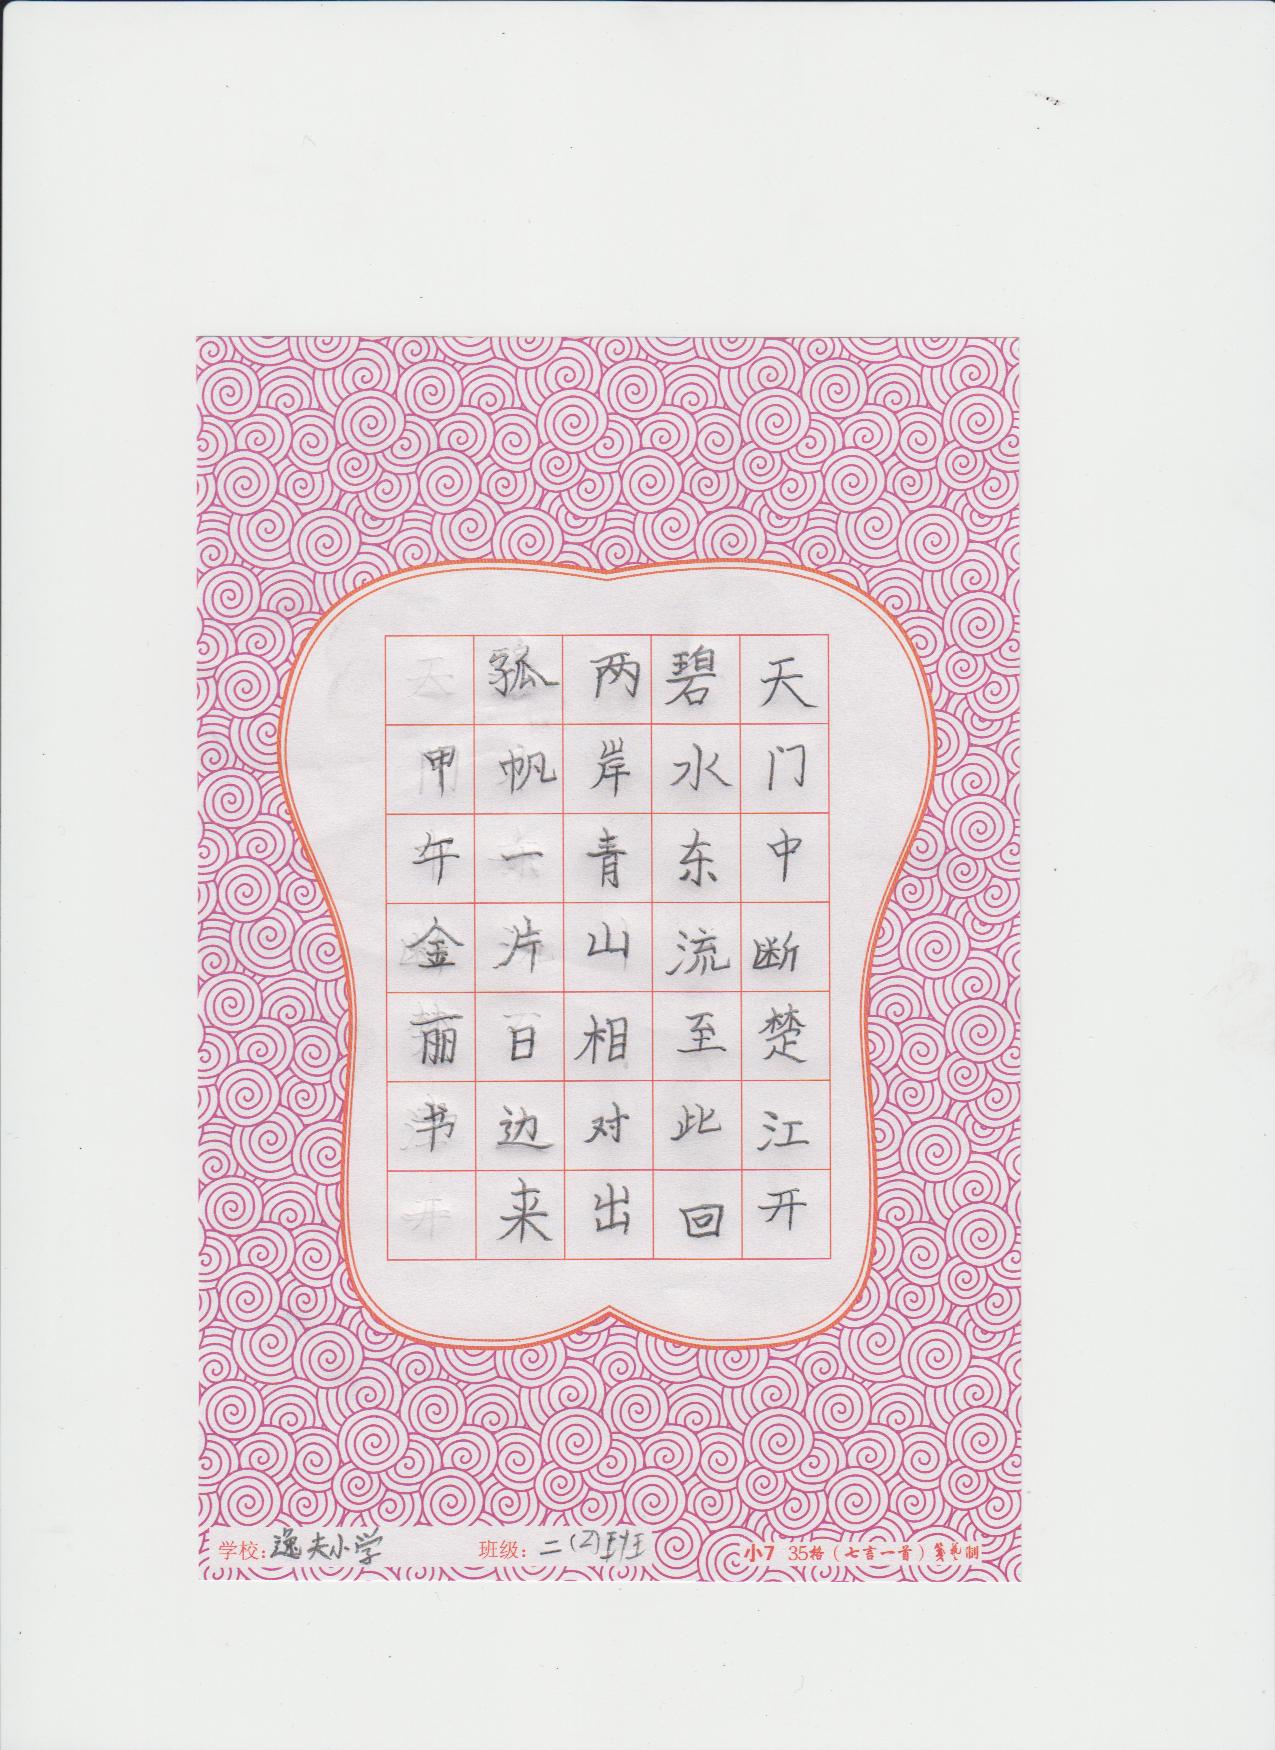 天门中断楚江开
碧水东流至此回
两岸青山相对出
孤帆一片日边来
甲午金丽书
学校：逸夫小学
班级：二(2)班
小7 35格（七言一首）笺艺制